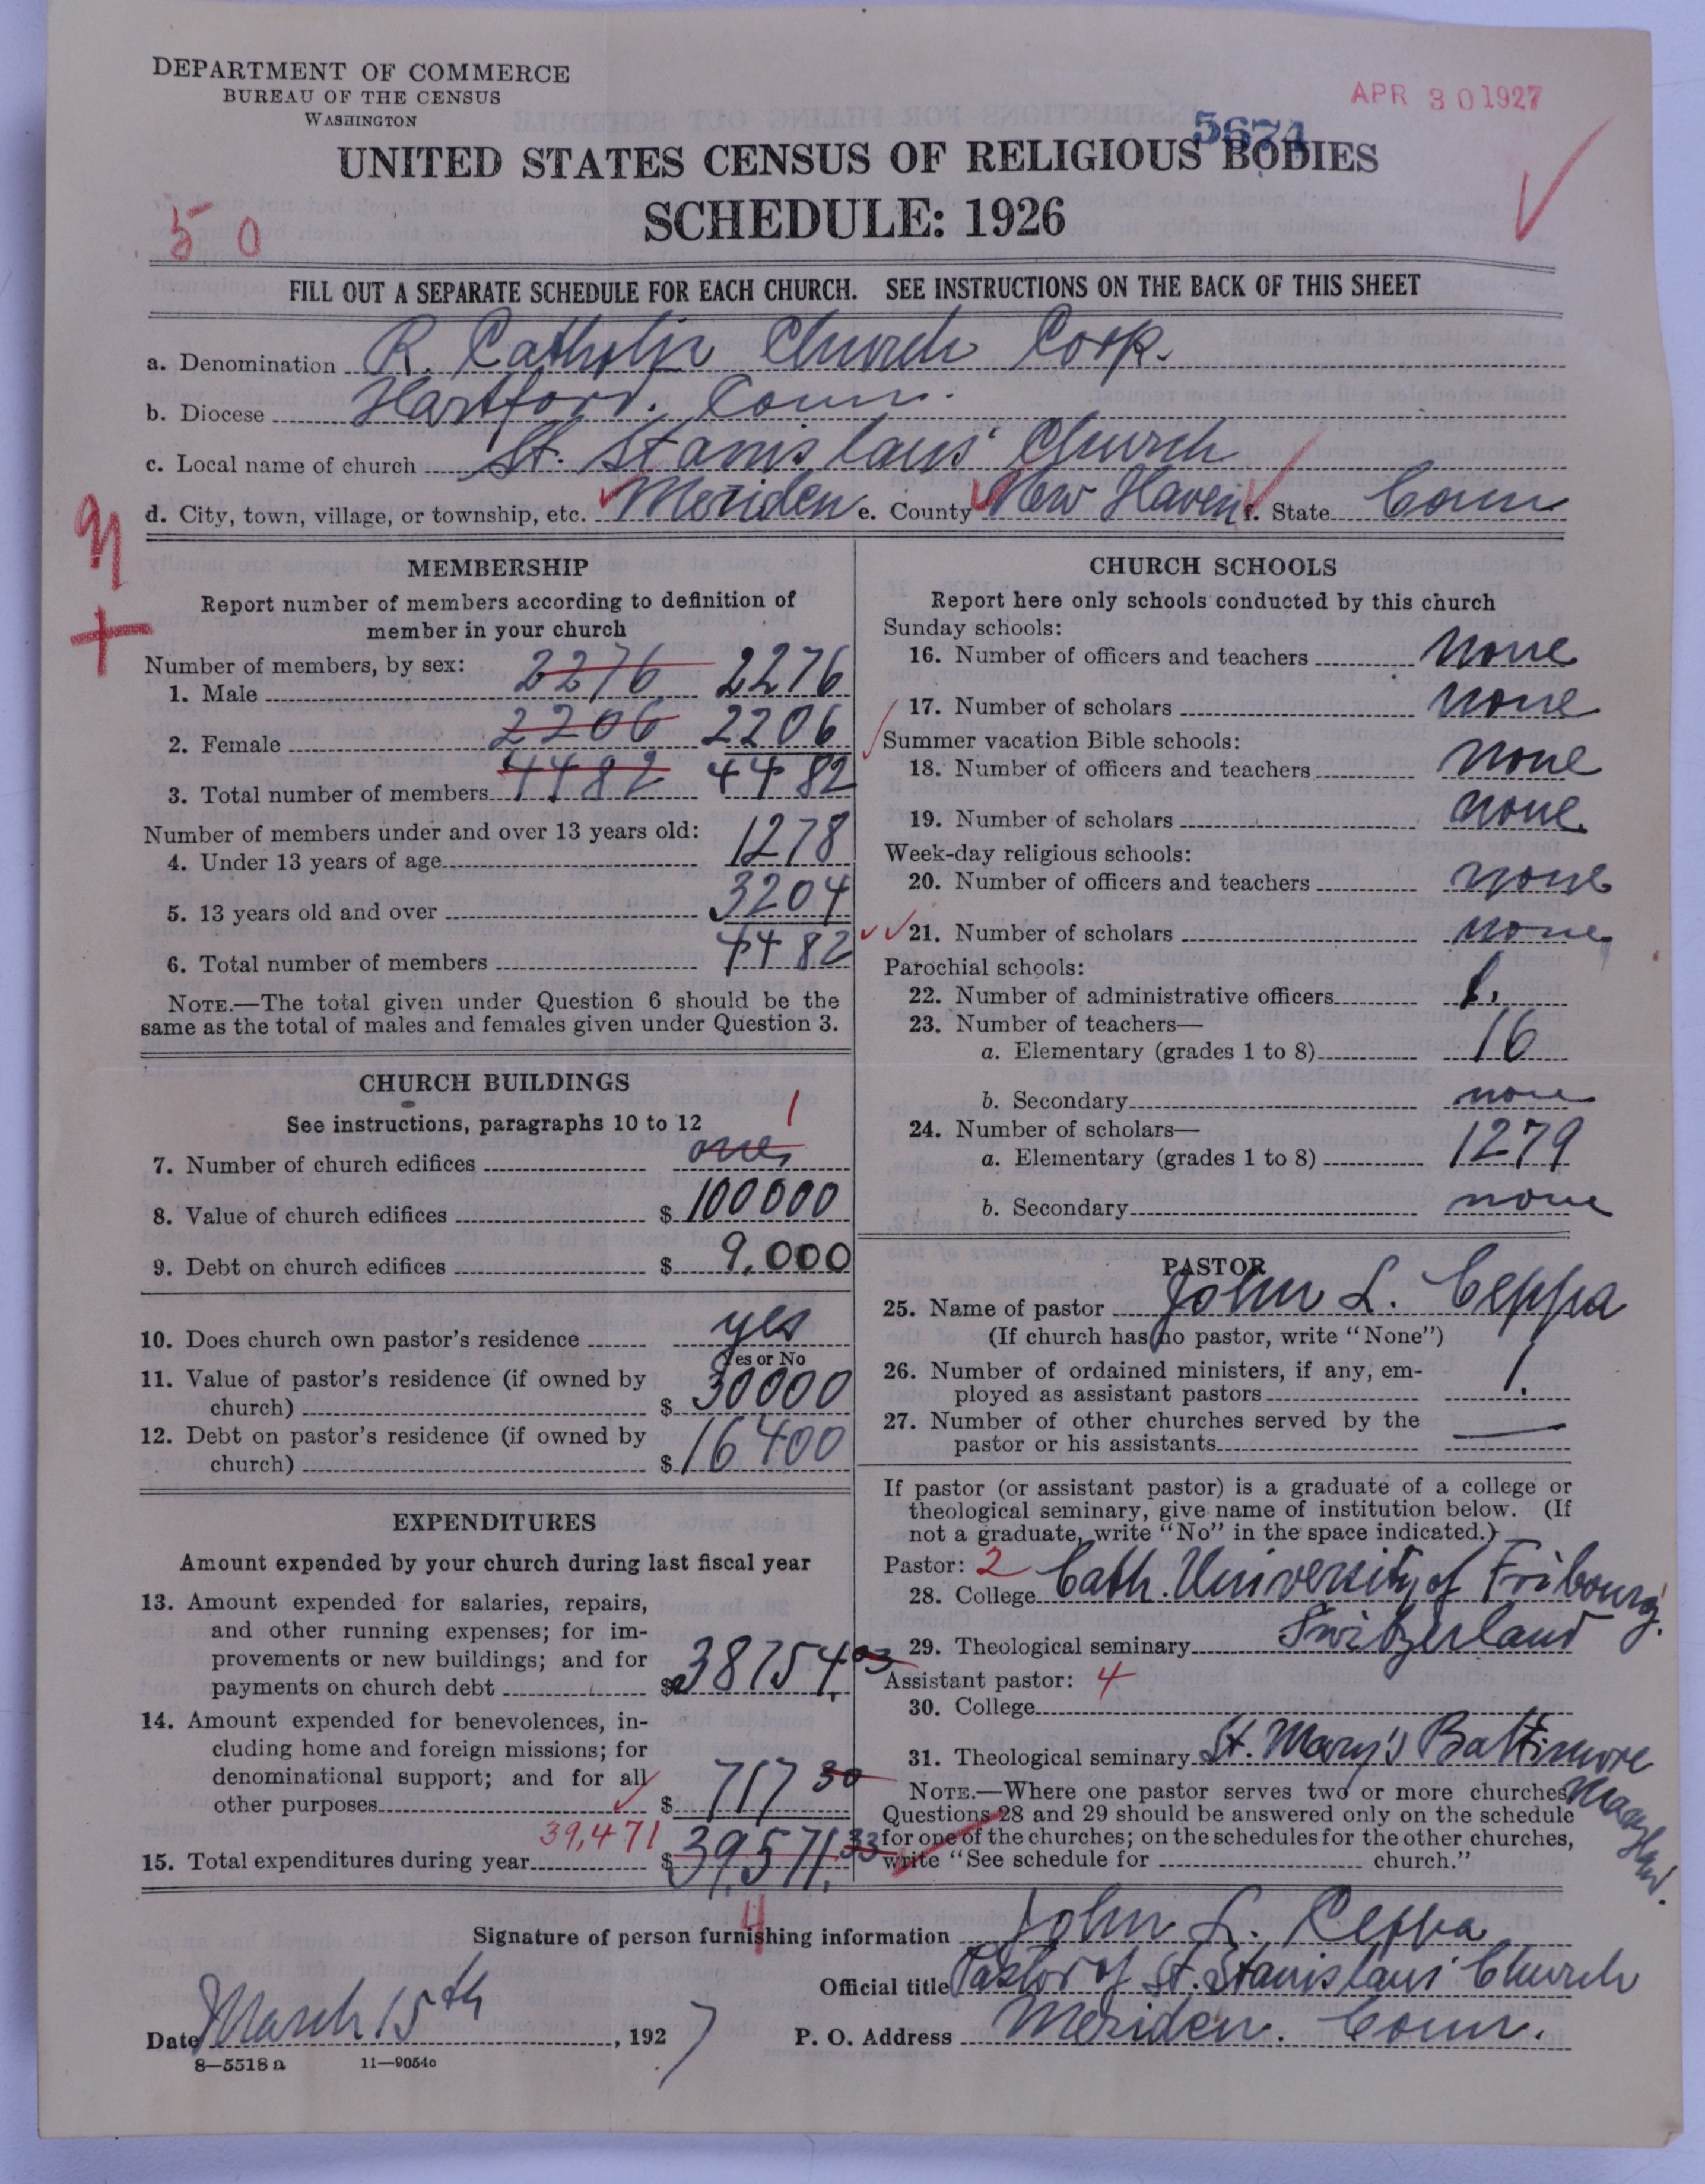 DEPARTMENT OF COMMERCE
BUREAU OF THE CENSUS
WASHINGTON
APR 30 1927
5674
UNITED STATES CENSUS OF RELIGIOUS BODIES
SCHEDULE: 1926
5 0
FILL OUT A SEPARATE SCHEDULE FOR EACH CHURCH. SEE INSTRUCTIONS ON THE BACK OF THIS SHEET
a. Denomination R. Catholic Church Corp.
b. Diocese Hartford, Conn.
c. Local name of church St. Stanislaus' Church
d. City, town, village, or township, etc. Meriden e. County New Haven f. State Conn
MEMBERSHIP
Report number of members according to definition of
member in your church
Number of members, by sex:
1. Male 2276 2276
2. Female 2206 2206
3. Total number of members 4482 4482
Number of members under and over 13 years old:
4. Under 13 years of age 1278
5. 13 years old and over 3204
6. Total number of members 4482
NOTE.—The total given under Question 6 should be the
same as the total of males and females given under Question 3.
CHURCH BUILDINGS
See instructions, paragraphs 10 to 12
1
7. Number of church edifices one,
8. Value of church edifices $ 100000
9. Debt on church edifices $ 9,000
10. Does church own pastor's residence yes
Yes or No
11. Value of pastor's residence (if owned by
church) $ 30000
12. Debt on pastor's residence (if owned by
church) $ 16400
EXPENDITURES
Amount expended by your church during last fiscal year
13. Amount expended for salaries, repairs,
and other running expenses; for im-
provements or new buildings; and for
payments on church debt $ 38754.03
14. Amount expended for benevolences, in-
cluding home and foreign missions; for
denominational support; and for all
other purposes $ 717 30
39,471
15. Total expenditures during year $ 39,571.33
4
CHURCH SCHOOLS
Report here only schools conducted by this church
Sunday schools:
16. Number of officers and teachers none
17. Number of scholars none
Summer vacation Bible schools:
18. Number of officers and teachers none
19. Number of scholars none
Week-day religious schools:
20. Number of officers and teachers none
21. Number of scholars none
Parochial schools:
22. Number of administrative officers 1.
23. Number of teachers—
a. Elementary (grades 1 to 8) 16
b. Secondary none
24. Number of scholars—
a. Elementary (grades 1 to 8) 1279
b. Secondary none
PASTOR
25. Name of pastor John L. Ceppa
(If church has no pastor, write "None")
26. Number of ordained ministers, if any, em-
ployed as assistant pastors 1.
27. Number of other churches served by the
pastor or his assistants —
If pastor (or assistant pastor) is a graduate of a college or
theological seminary, give name of institution below. (If
not a graduate, write "No" in the space indicated.)
Pastor: 2
28. College Cath. University of Fribourg.
29. Theological seminary Switzerland
Assistant pastor: 4
30. College
31. Theological seminary St. Mary's Baltimore
Maryland.
NOTE.—Where one pastor serves two or more churches
Questions 28 and 29 should be answered only on the schedule
for one of the churches; on the schedules for the other churches,
write "See schedule for church."
Signature of person furnishing information John L. Ceppa
Official title Pastor of St. Stanislaus' Church
Date March 15th, 1927 P. O. Address Meriden. Conn.
8—5518 a 11—9054c